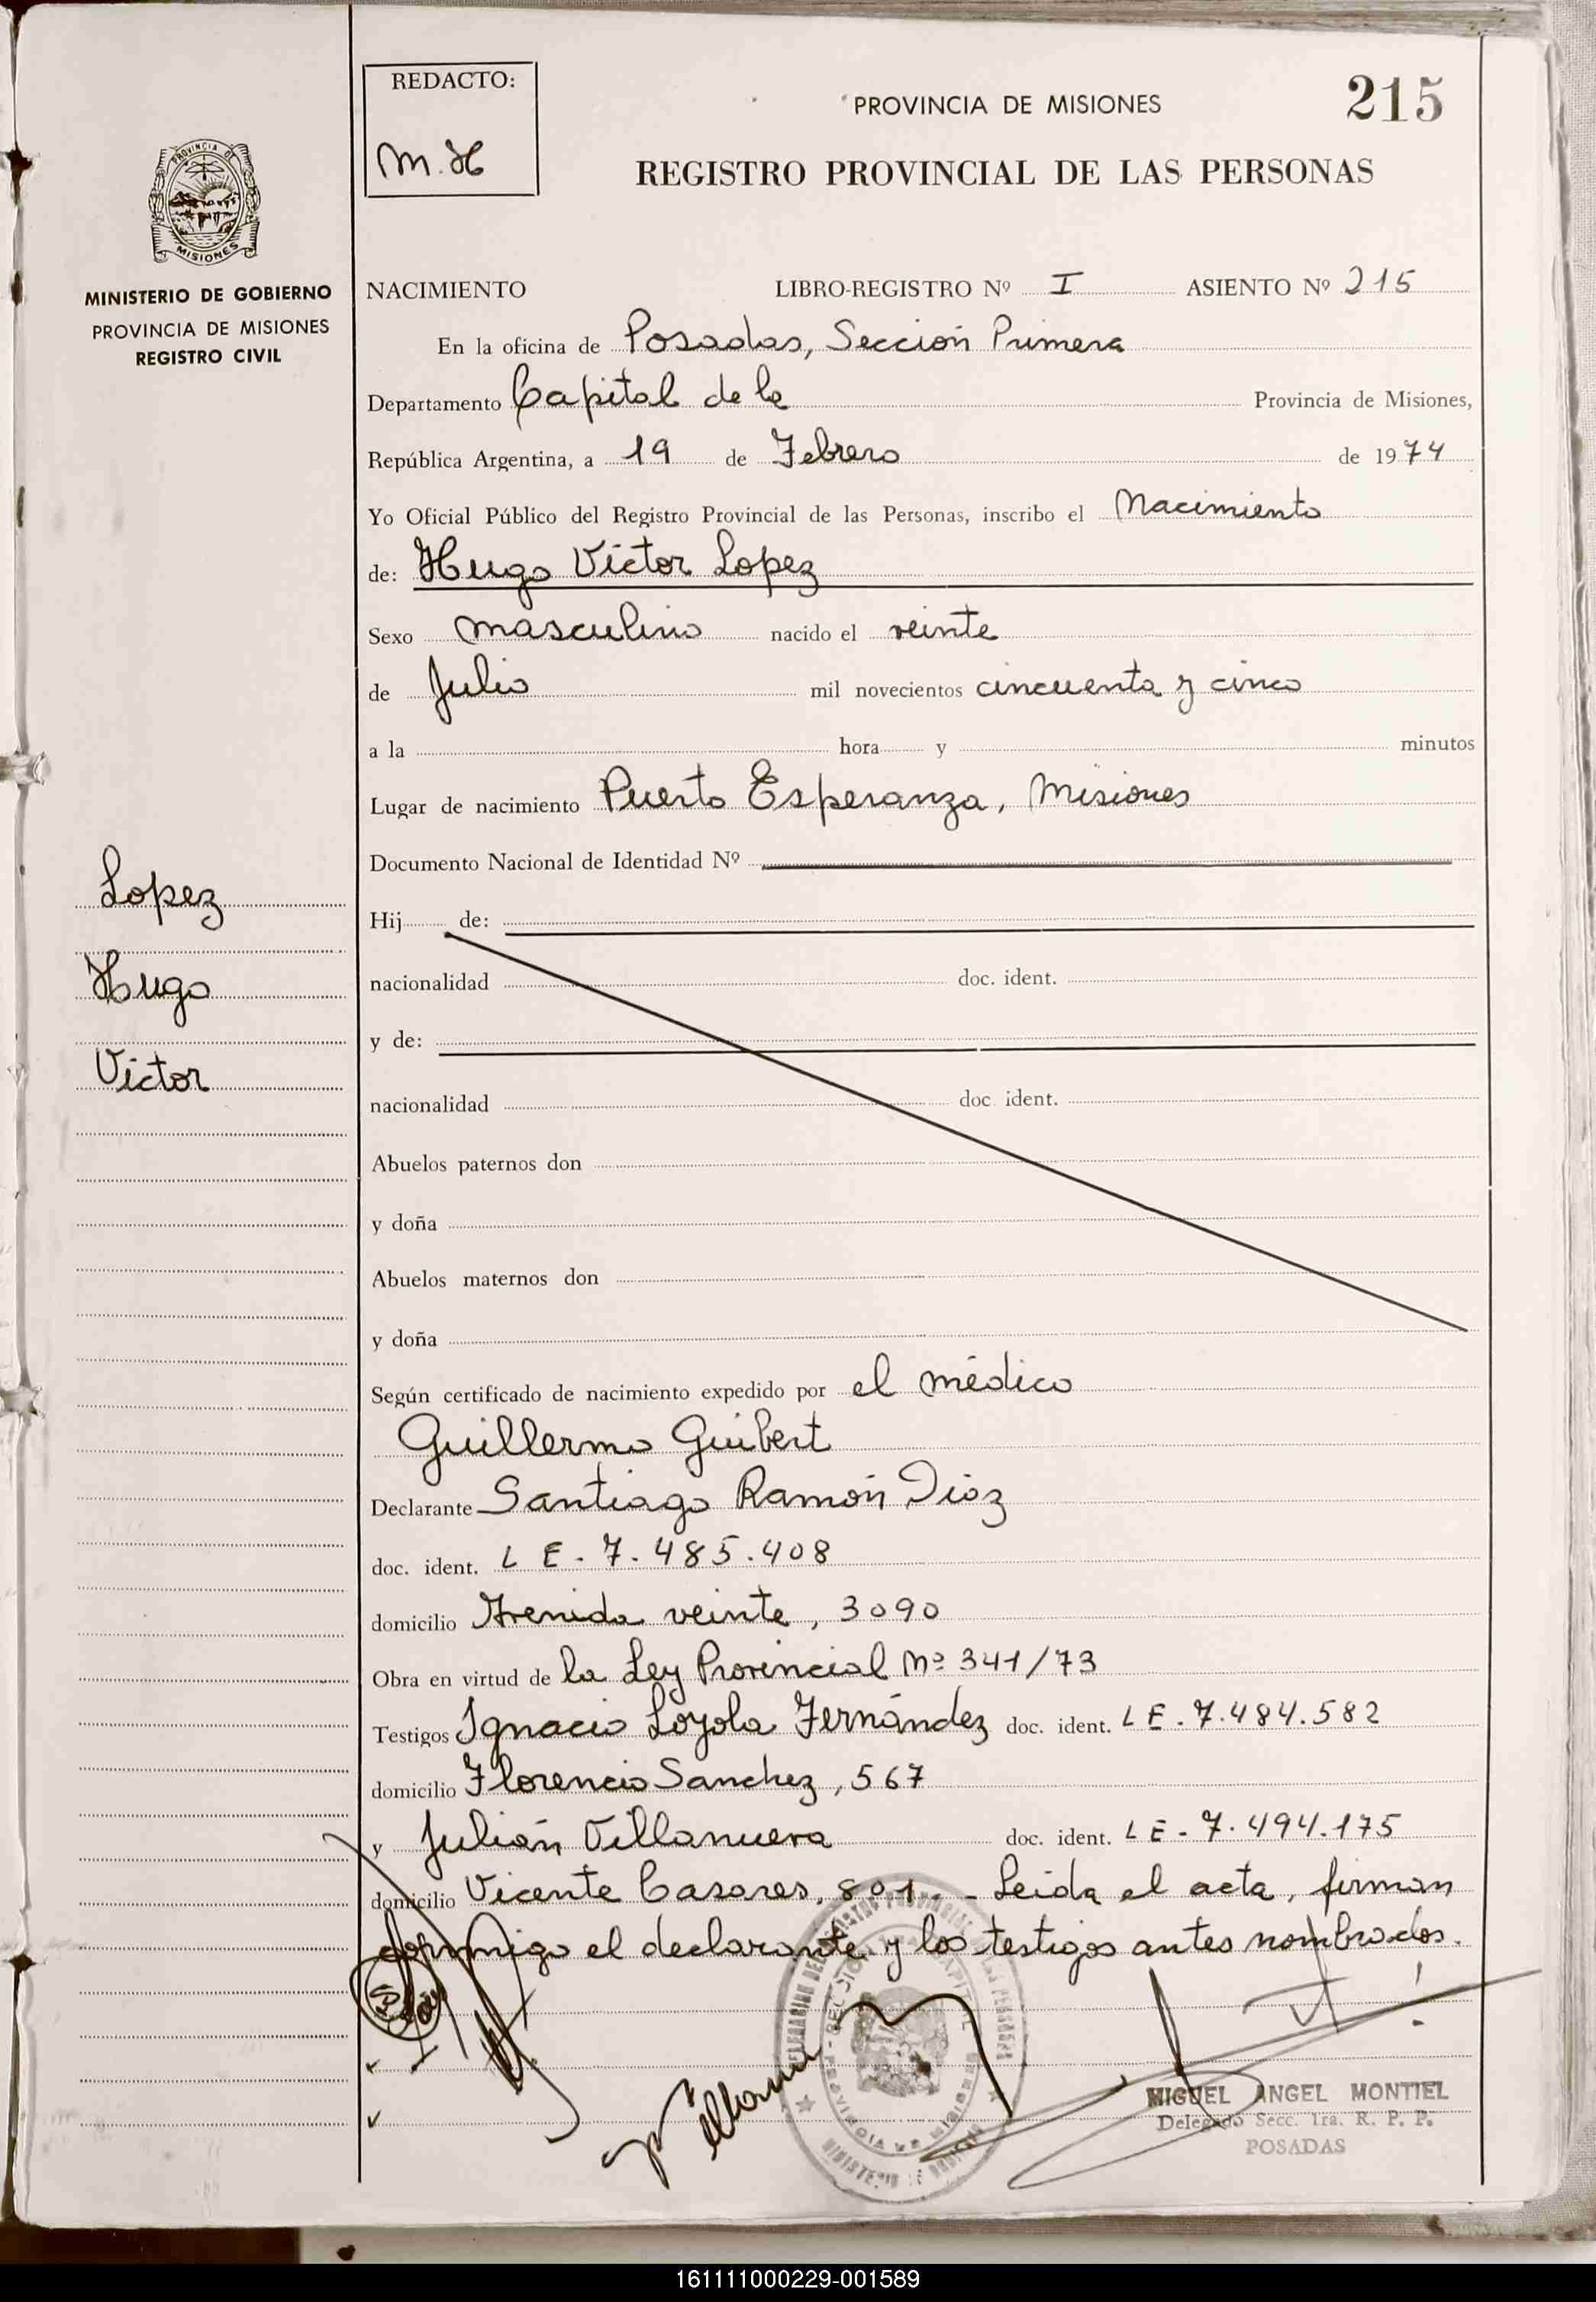 REDACTO:
M. H
PROVINCIA DE MISIONES
215
REGISTRO PROVINCIAL DE LAS PERSONAS
PROVINCIA DE
MISIONES
MINISTERIO DE GOBIERNO
PROVINCIA DE MISIONES
REGISTRO CIVIL
NACIMIENTO LIBRO-REGISTRO Nº I ASIENTO Nº 215
En la oficina de Posadas, Sección Primera
Departamento Capital de la Provincia de Misiones,
República Argentina, a 19 de Febrero de 1974
Yo Oficial Público del Registro Provincial de las Personas, inscribo el Nacimiento
de: Hugo Víctor Lopez
Sexo masculino nacido el veinte
de Julio mil novecientos cincuenta y cinco
a la hora y minutos
Lugar de nacimiento Puerto Esperanza, Misiones
Documento Nacional de Identidad Nº
Lopez
Hugo
Víctor
Hij de:
nacionalidad doc. ident.
y de:
nacionalidad doc ident.
Abuelos paternos don
y doña
Abuelos maternos don
y doña
Según certificado de nacimiento expedido por el médico
Guillermo Guibert
Declarante Santiago Ramón Diaz
doc. ident. L E. 7.485.408
domicilio Avenida veinte, 3090
Obra en virtud de la Ley Provincial Nº 341/73
Testigos Ignacio Loyola Fernández doc. ident. L E. 7.484.582
domicilio Florencio Sanchez, 567
y Julián Villanueva doc. ident. L E. 7.494.175
domicilio Vicente Casares, 801. - Leída el acta, firman
conmigo el declarante y los testigos antes nombrados.
MIGUEL ANGEL MONTIEL
Delegado Secc. 1ra. R. P. P.
POSADAS
161111000229-001589